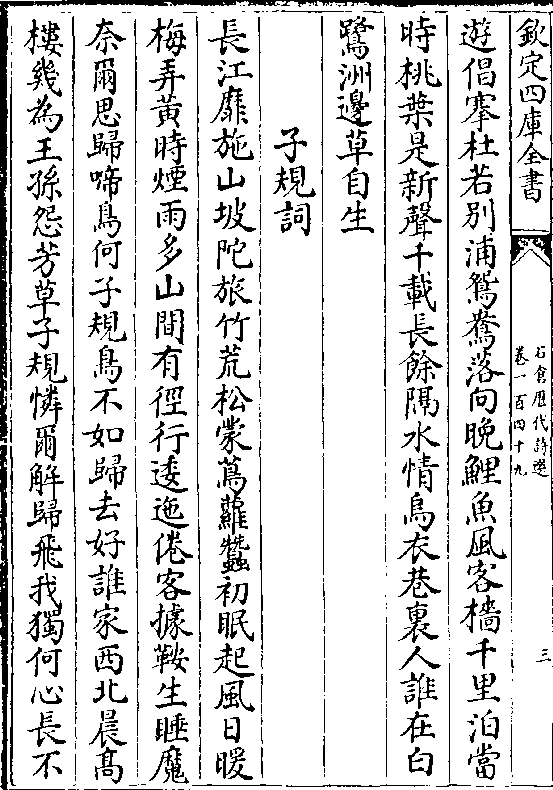 欽定四庫全書
石倉歴代詩選
卷一百四十九
三
遊倡搴杜若别浦鴛鴦落向晚鯉魚風客檣千里泊當
時桃葉是新聲千載長餘隔水情烏衣巷裏人誰在白
鷺洲邊草自生
子規詞
長江靡施山坡陀旅竹荒松蒙蔦蘿蠶初眠起風日暖
梅弄黃時煙雨多山間有徑行逶迤倦客據鞍生睡魔
奈爾思歸啼鳥何子規鳥不如歸去好誰家西北晨髙
樓幾為王孫怨芳草子規憐爾解歸飛我獨何心長不